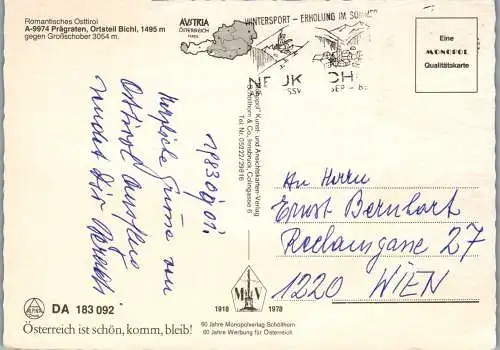 Romantisches Osttirol
A-9974 Prägraten, Ortsteil Bichl, 1495 m
gegen Großschober 3054 m.
AUSTRIA
ÖSTERREICH
TIROL
WINTERSPORT – ERHOLUNG IM SOMMER
Eine
MONOPOL
Qualitätskarte
Herzliche Grüße von
Osttirol
sendet Dir
"Monopol" Kunst- und Ansichtskarten-Verlag
Schöllhorn & Co., Innsbruck, Cölingasse 6
Tel. Nr. 05022/29816
An Herrn
Ernst Bernhart
Reclamgasse 27
1220 WIEN
ALPINA
DA 183 092
Österreich ist schön, komm, bleib!
1918
M V
1978
60 Jahre Monopolverlag Schöllhorn
60 Jahre Werbung für Österreich